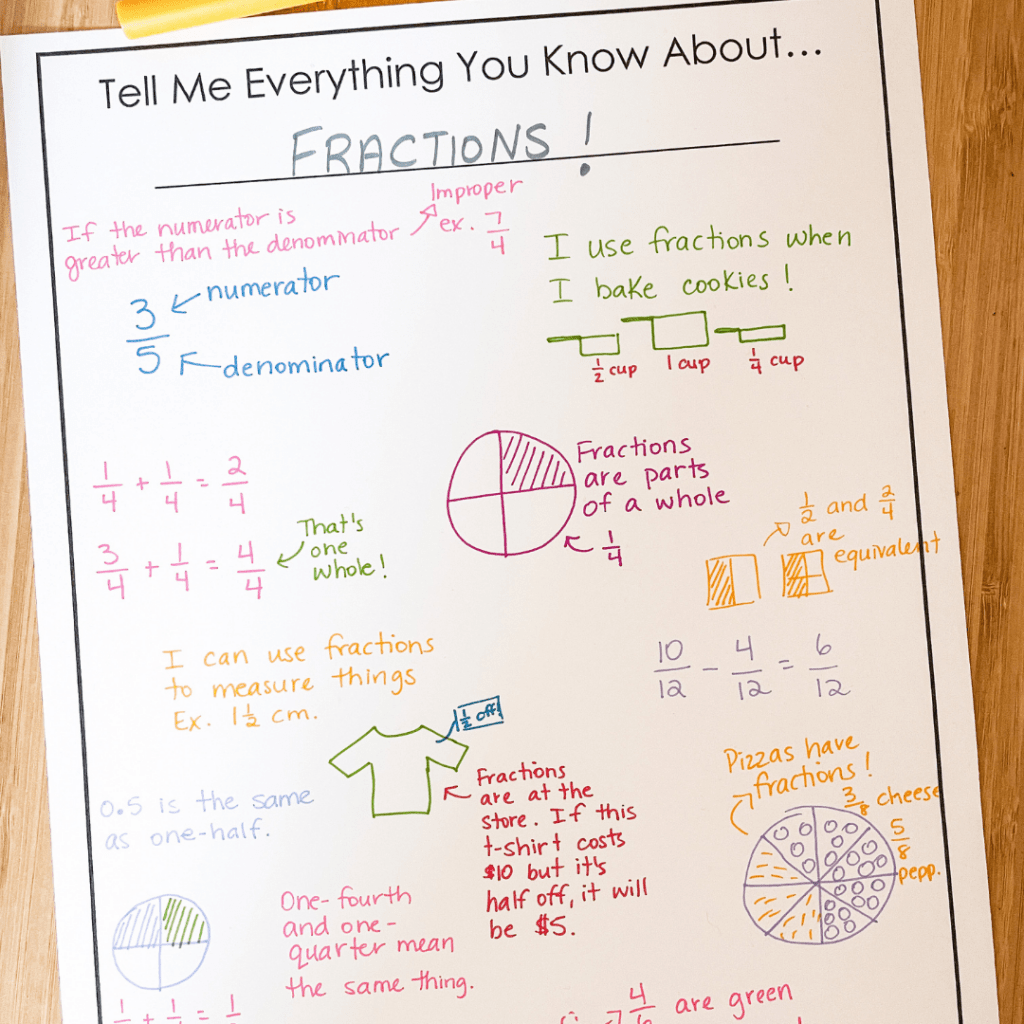 Tell Me Everything You Know About...
FRACTIONS!
If the numerator is
greater than the denominator
Improper
ex. 7/4
3/5
numerator
denominator
I use fractions when
I bake cookies!
1/2 cup
1 cup
1/4 cup
1/4 + 1/4 = 2/4
3/4 + 1/4 = 4/4
That's
one
whole!
Fractions
are parts
of a whole
1/4
1/2 and 2/4
are
equivalent
10/12 - 4/12 = 6/12
I can use fractions
to measure things
Ex. 1 1/2 cm.
1/2 off!
Fractions
are at the
store. If this
t-shirt costs
$10 but it's
half off, it will
be $5.
0.5 is the same
as one-half.
Pizzas have
fractions!
3/8 cheese
5/8
pepp.
One-fourth
and one-
quarter mean
the same thing.
4/6 are green